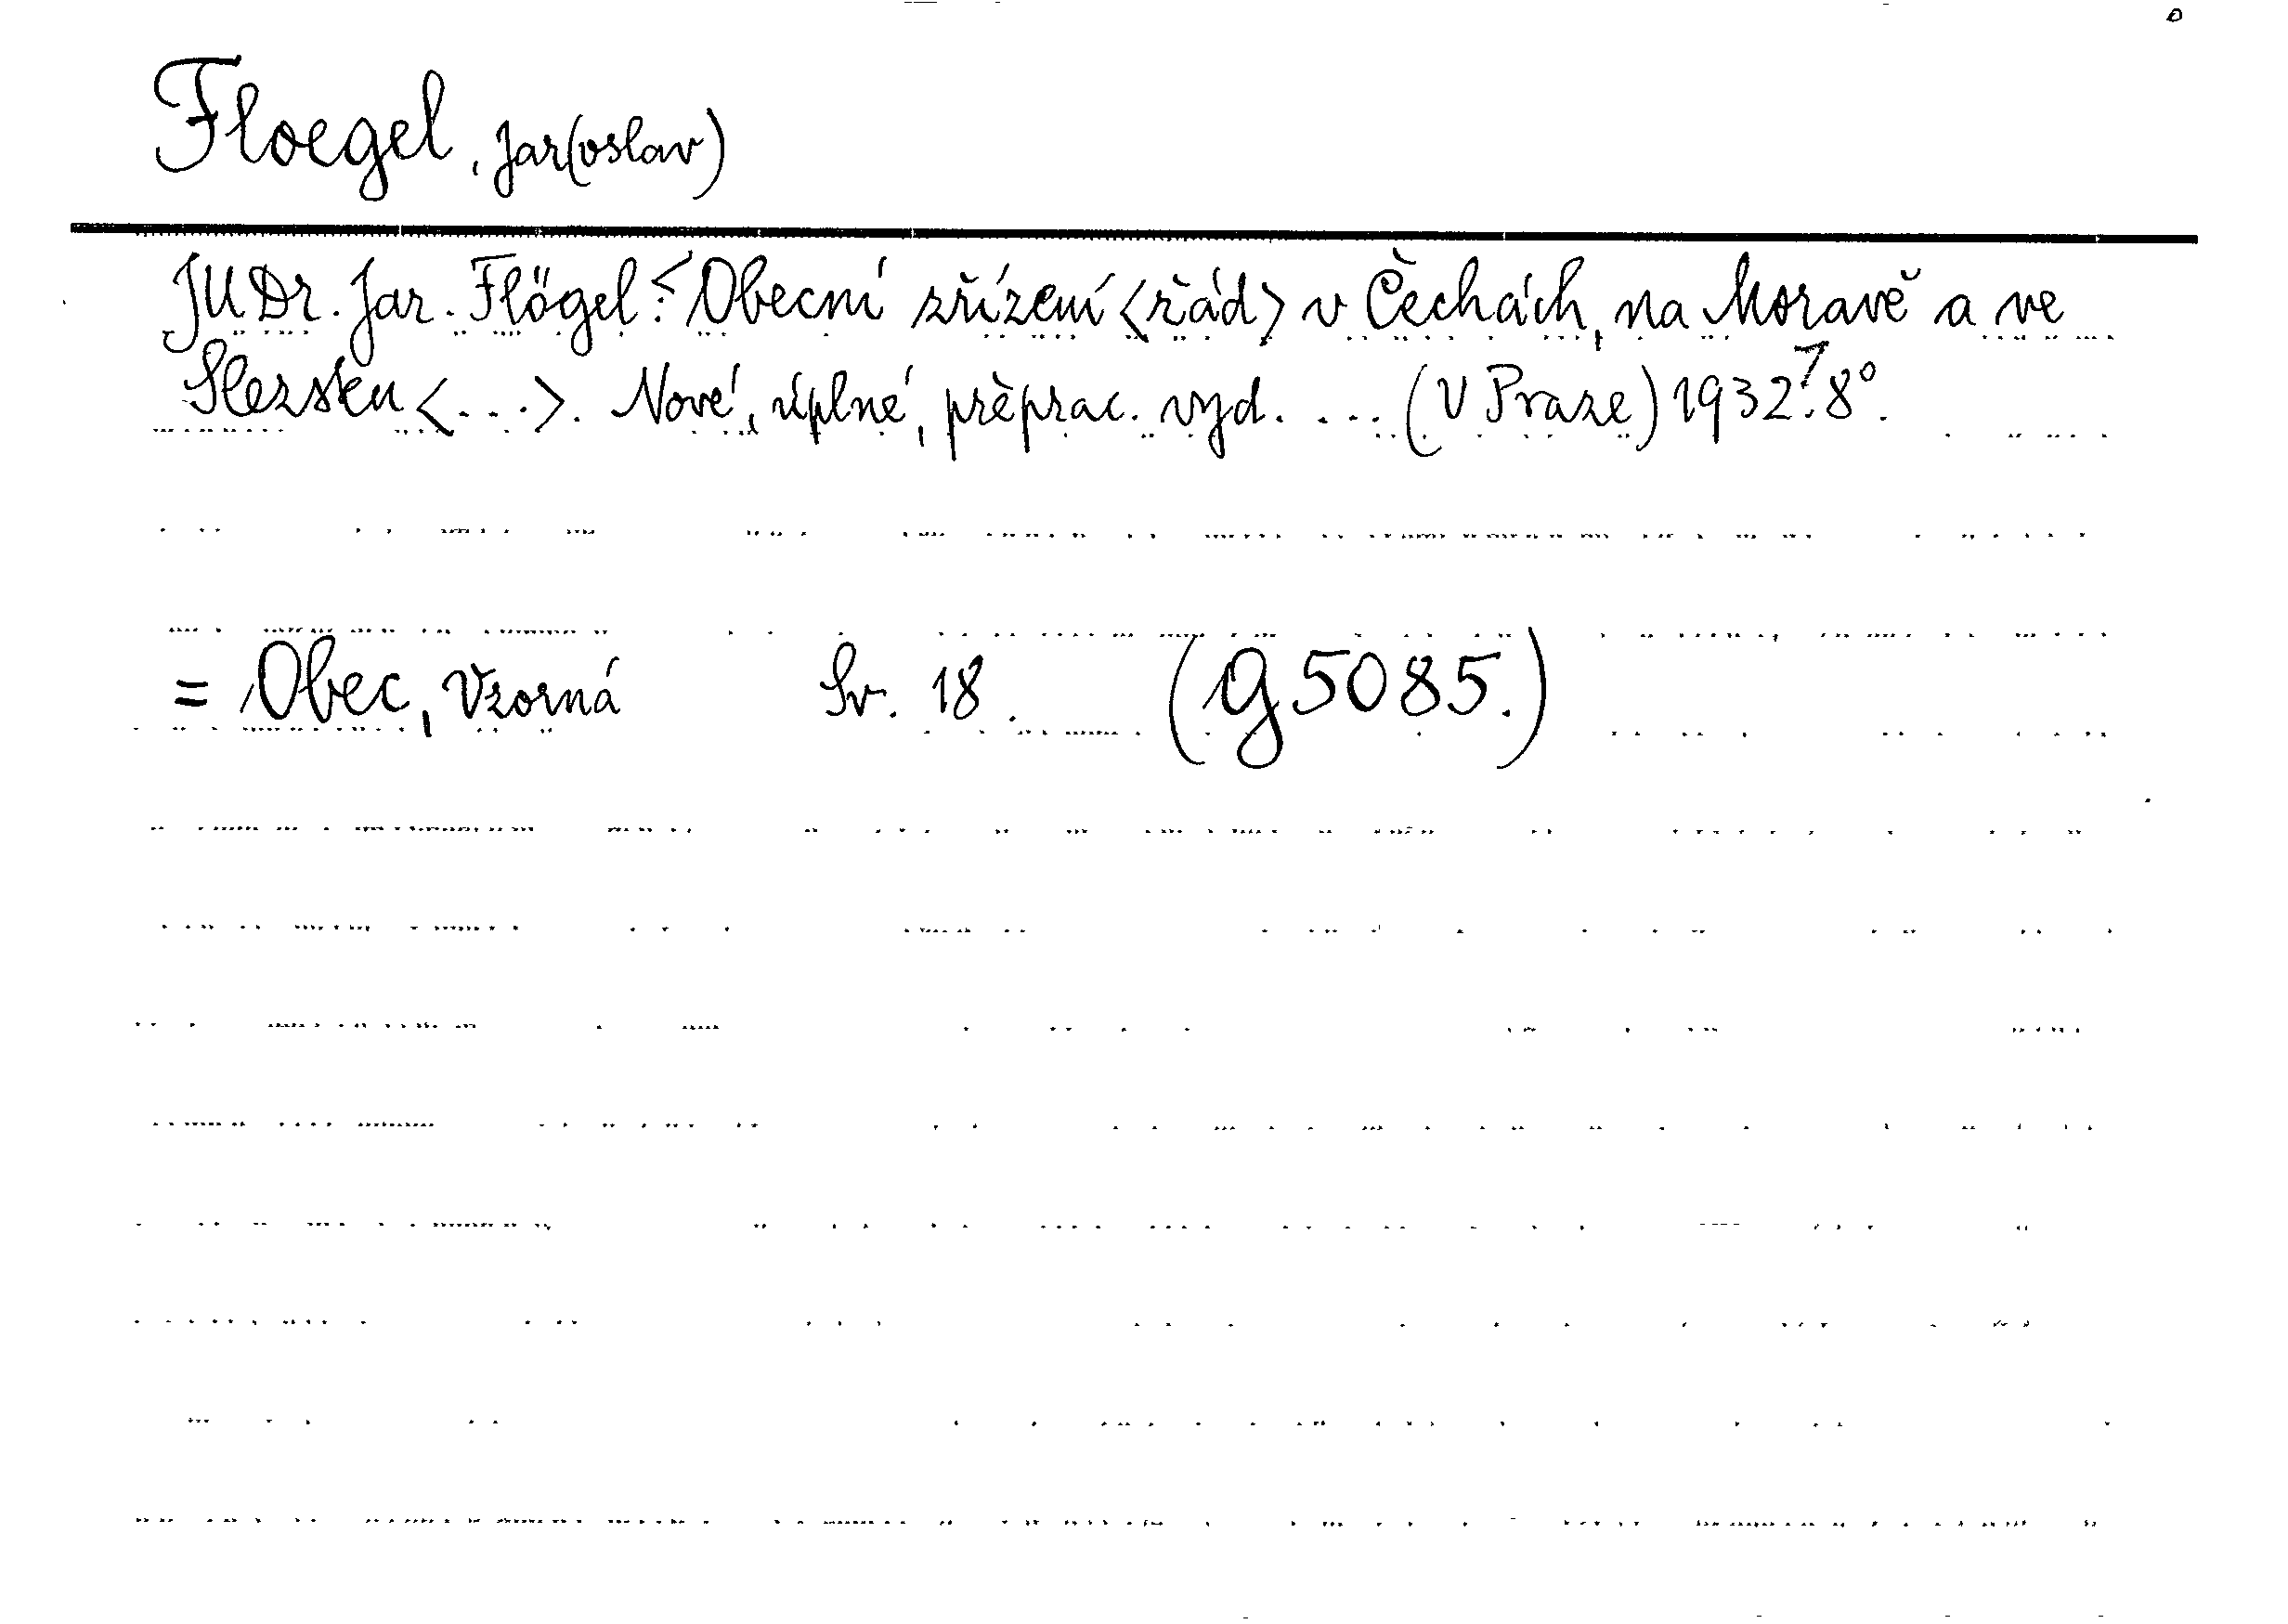 Floegel, Jar(oslav)
JUDr. Jar. Flögel: Obecní zřízení <řád> v Čechách, na Moravě a ve
Slezsku <...>. Nové, úplné, přeprac. vyd. ... (V Praze) 1932. 8°.
= Obec, Vzorná Sv. 18. (g 5085.)